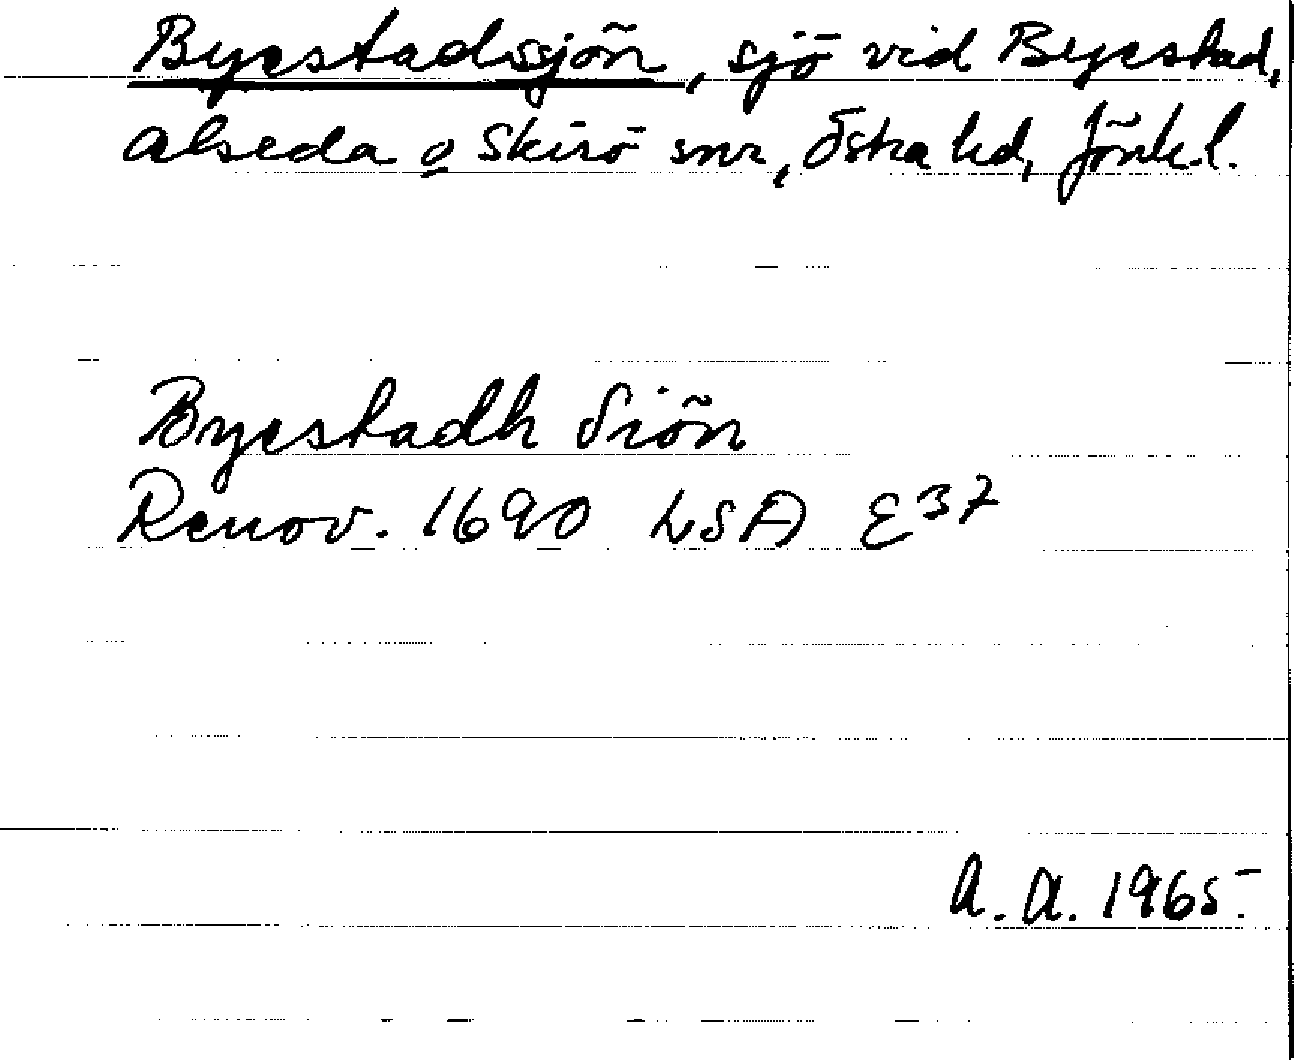 Byestadssjön, sjö vid Byestad,
Alseda o Skirö snr, Östra hd, Jönk.l.
Byestadh Siön
Renov. 1690 LSA E37
A.A. 1965.